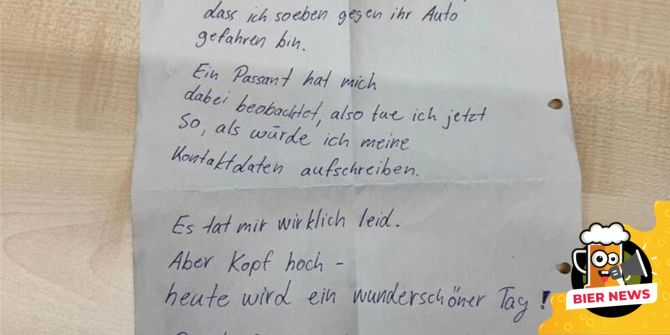 dass ich soeben gegen ihr Auto
gefahren bin.
Ein Passant hat mich
dabei beobachtet, also tue ich jetzt
so, als würde ich meine
Kontaktdaten aufschreiben.
Es tat mir wirklich leid.
Aber Kopf hoch -
heute wird ein wunderschöner Tag!
BIER NEWS